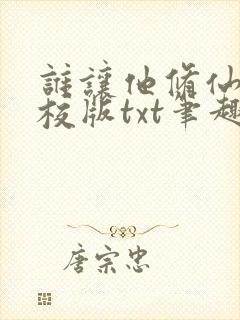 誰讓他修仙
校版txt筆趣
唐宗忠